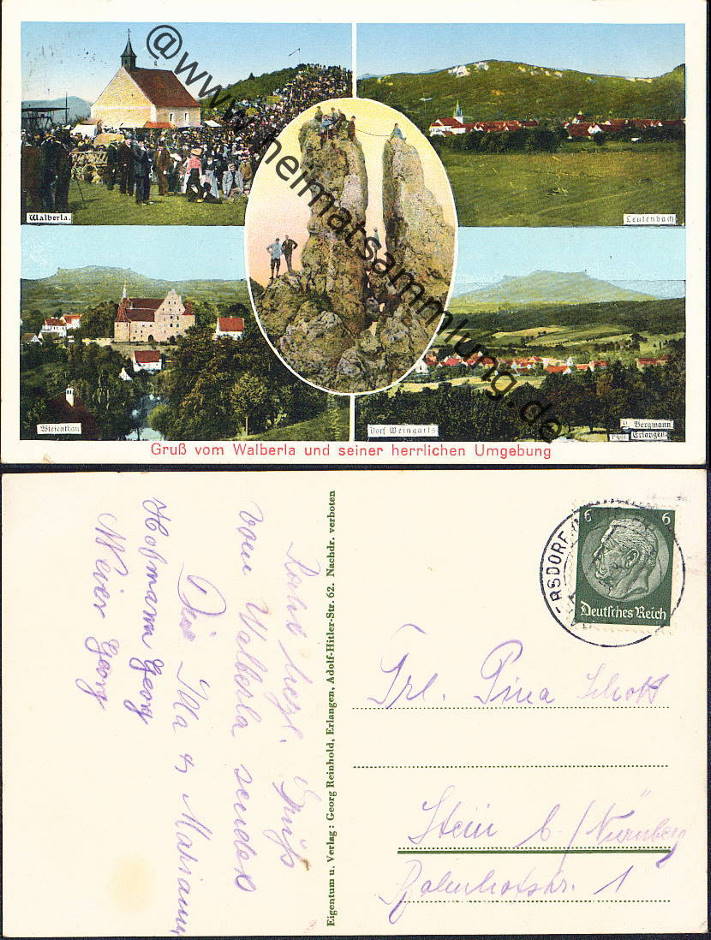 @www.heimatsammlung.de
Walberla.
Leutenbach
Wiesenthau
Dorf Weingarts
Bergmann
Erlangen
Gruß vom Walberla und seiner herrlichen Umgebung
Recht herzl. Grüß
vom Walberla sendet
Marianne
Hofmann Georg
Meier Georg
Eigentum u. Verlag: Georg Reinhold, Erlangen, Adolf-Hitler-Str. 62. Nachdr. verboten
RSDORF
6 6
Deutsches Reich
Frl.
Stein b/Nürnberg
Bahnhofstr. 1